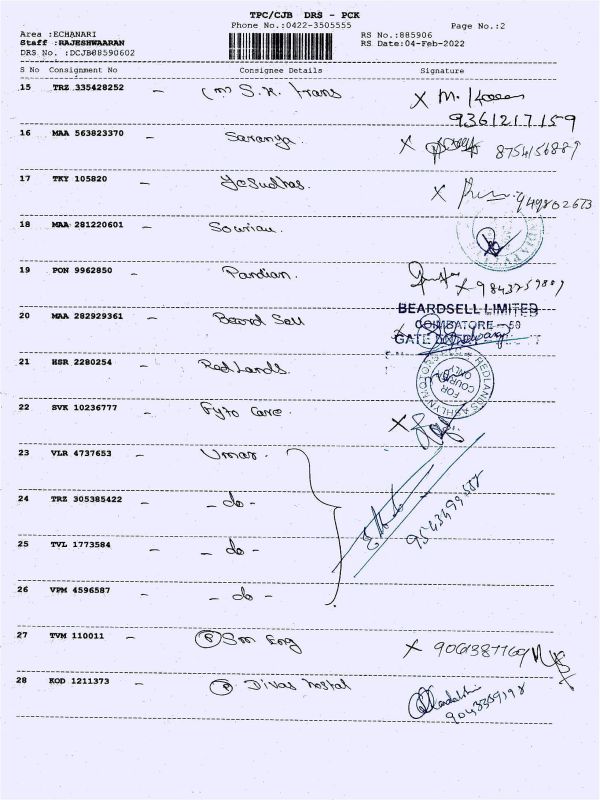 TPC/CJB DRS - PCK
Phone No.:0422-3505555 Page No.:2
Area :ECHANARI
Staff :RAJESHWAARAN
DRS No. :DCJB08590602
RS No.:885906
RS Date:04-Feb-2022
S No Consignment No Consignee Details Signature
15 TRZ 335428252 - S.K. Trans X M.
9361217159
16 MAA 563823370 - Saranya. X 8754156889
17 TKY 105820 - Yesudhas. X 949802673
18 MAA 281220601 - Sourian.
19 PON 9962850 - Pandian. X 9843759889
20 MAA 282929361 - Beard Sell
BEARDSELL LIMITED
COIMBATORE - 50
GATE
21 HSR 2280254 - Redlands.
REDLANDS ASHLYN MOTORS
FOR COURIER ONLY
22 SVK 10236777 - Fyto Care. X
23 VLR 4737653 - Umar.
24 TRZ 305385422 - - do -
25 TVL 1773584 - - do -
26 VPM 4596587 - - do -
27 TVM 110011 - (P) Sm Eng X
28 KOD 1211373 - (P) Divas hostal
9043359198